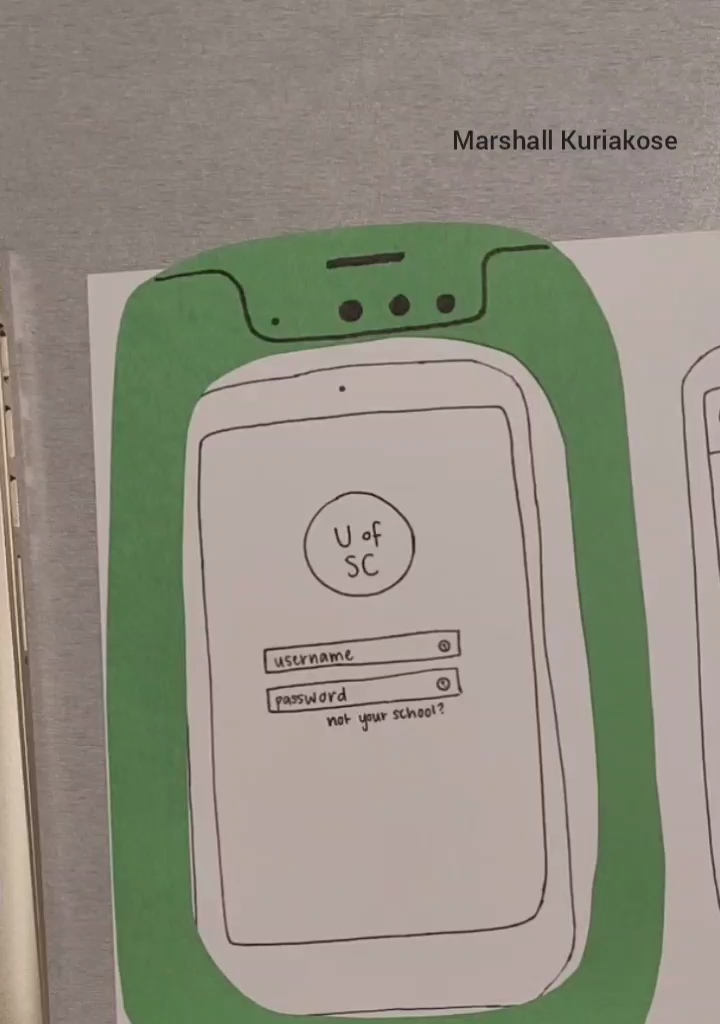 Marshall Kuriakose
U of
SC
username
password
not your school?